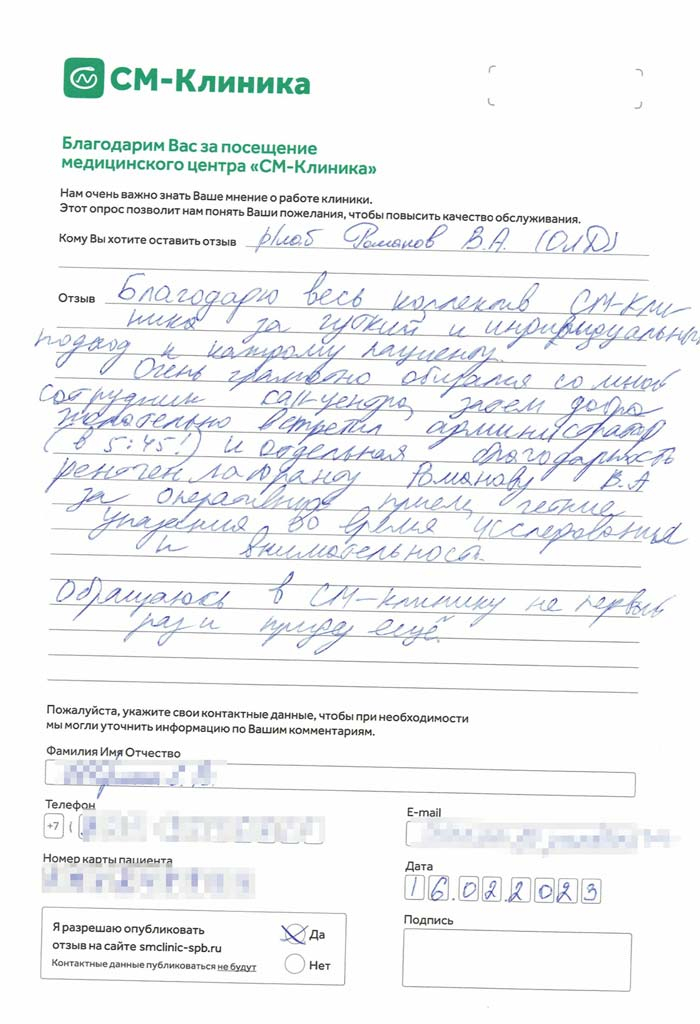 СМ-Клиника
Благодарим Вас за посещение
медицинского центра «СМ-Клиника»
Нам очень важно знать Ваше мнение о работе клиники.
Этот опрос позволит нам понять Ваши пожелания, чтобы повысить качество обслуживания.
Кому Вы хотите оставить отзыв р/лаб Романов В.А. (ОЛД)
Отзыв Благодарю весь коллектив СМ-Кли-
ника за чуткий и индивидуальный
подход к каждому пациенту.
Очень грамотно общался со мной
сотрудник call-центра, затем добро
желательно встретил администратор
(в 5:45!) и отдельная благодарность
рентген лаборанту Романову В.А
за оперативный прием, четкие
указания во время исследования
и внимательность.
Обращаюсь в СМ-клинику не первый
раз и приду ещё.
Пожалуйста, укажите свои контактные данные, чтобы при необходимости
мы могли уточнить информацию по Вашим комментариям.
Фамилия Имя Отчество
Телефон
+7 (
E-mail
Номер карты пациента
Дата
16.02.2023
Я разрешаю опубликовать
отзыв на сайте smclinic-spb.ru
Контактные данные публиковаться не будут
Да
Нет
Подпись